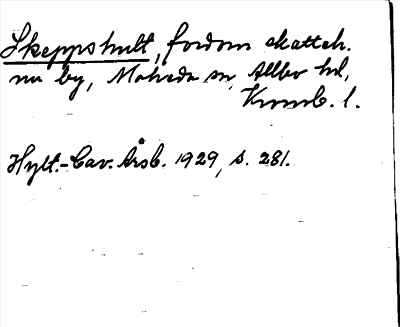 Skeppshult, fordom skatteh.
nu by, Moheda sn, Allbo hd,
Kronb. l.
Hylt.-Cav. Årsb. 1929, s. 281.